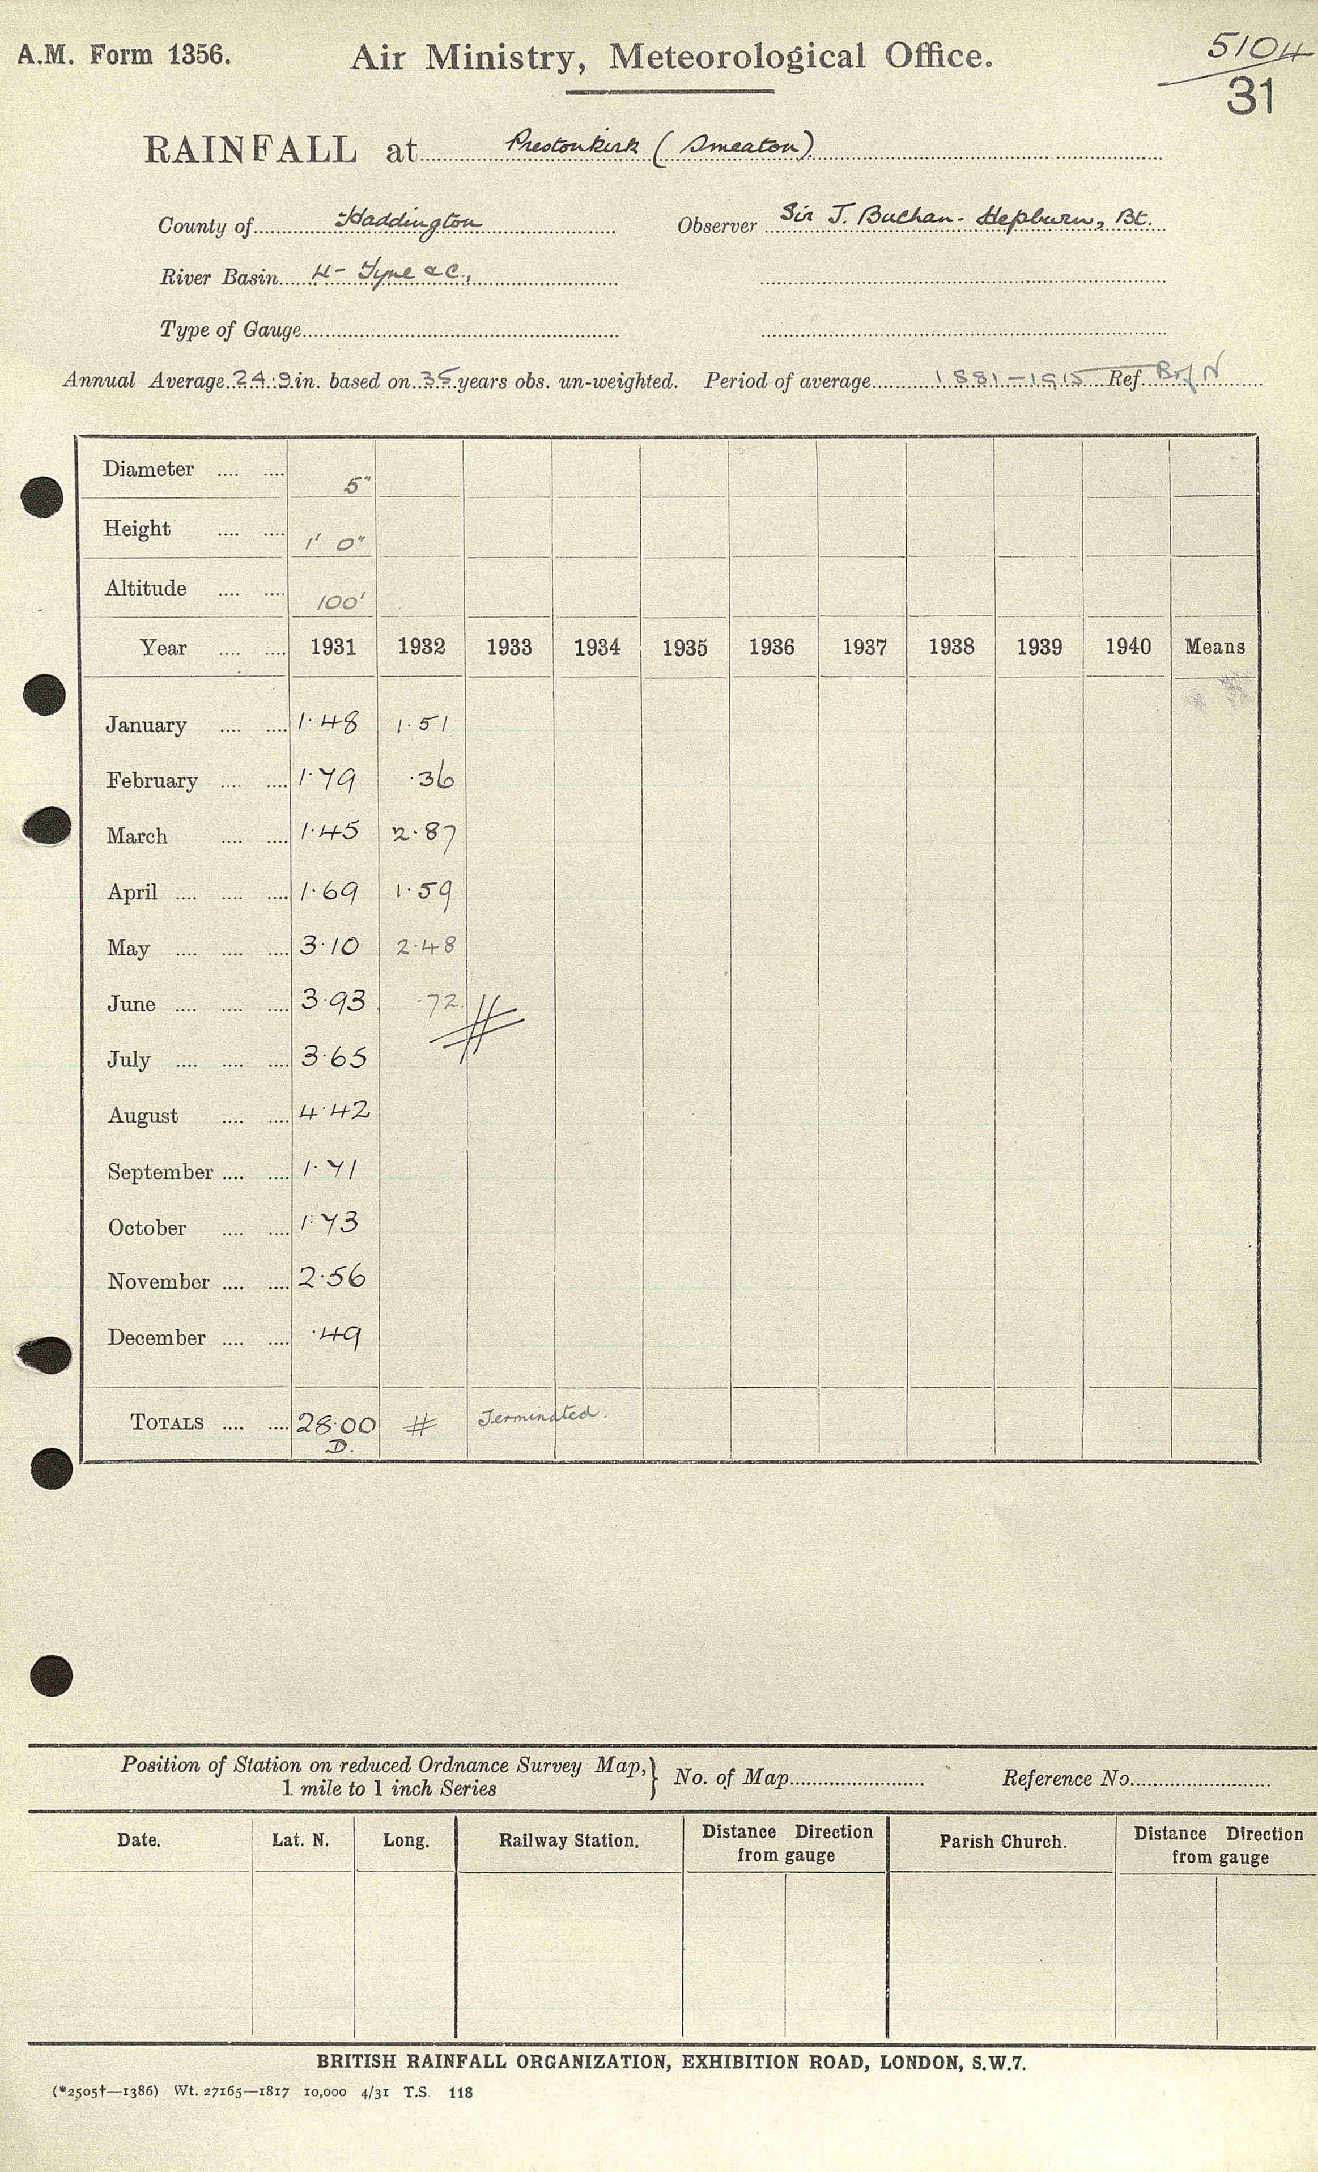 A.M. Form 1356. Air Ministry, Meteorological Office. 5104
31
RAINFALL at Prestonkirk (Smeaton)
County of Haddington Observer Sir J. Buchan-Hepburn, Bt.
River Basin 4- Tyne &c.,
Type of Gauge
Annual Average 24.9 in. based on 35 years obs. un-weighted. Period of average 1881-1915 Ref.
Diameter .... .... 5"
Height .... .... 1' 0"
Altitude .... .... 100'
Year .... .... 1931 1932 1933 1934 1935 1936 1937 1938 1939 1940 Means
January .... .... 1.48 1.51
February .... .... 1.79 .36
March .... .... 1.45 2.87
April .... .... .... 1.69 1.59
May .... .... .... 3.10 2.48
June .... .... .... 3.93 .72 #
July .... .... .... 3.65
August .... .... 4.42
September .... .... 1.71
October .... .... 1.73
November .... .... 2.56
December .... .... .49
TOTALS .... .... 28.00 # Terminated.
D.
Position of Station on reduced Ordnance Survey Map, } No. of Map Reference No.
1 mile to 1 inch Series
Date. Lat. N. Long. Railway Station. Distance Direction from gauge Parish Church. Distance Direction from gauge
BRITISH RAINFALL ORGANIZATION, EXHIBITION ROAD, LONDON, S.W.7.
(*2505†—1386) Wt. 27165—1817 10,000 4/31 T.S. 118